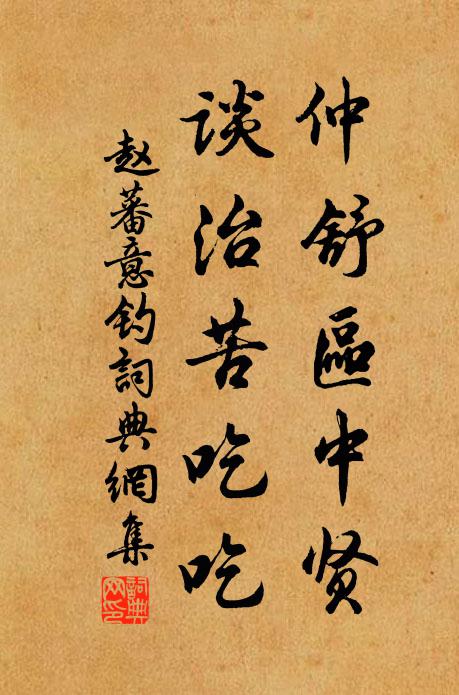 仲舒區中贤
谈治苦吃吃
赵蕃意钓詞典網集
詞典网印